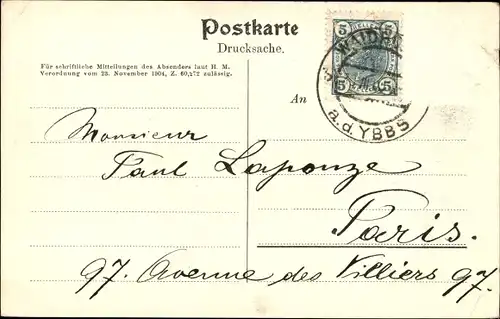 Postkarte
Drucksache.
Für schriftliche Mitteilungen des Absenders laut H. M.
Verordnung vom 23. November 1904, Z. 60,172 zulässig.
5 HELLER 5
5 5
WAIDH
a.d. YBBS
An
Monsieur
Paul Laponze
Paris.
97. Avenue des Villiers 97.